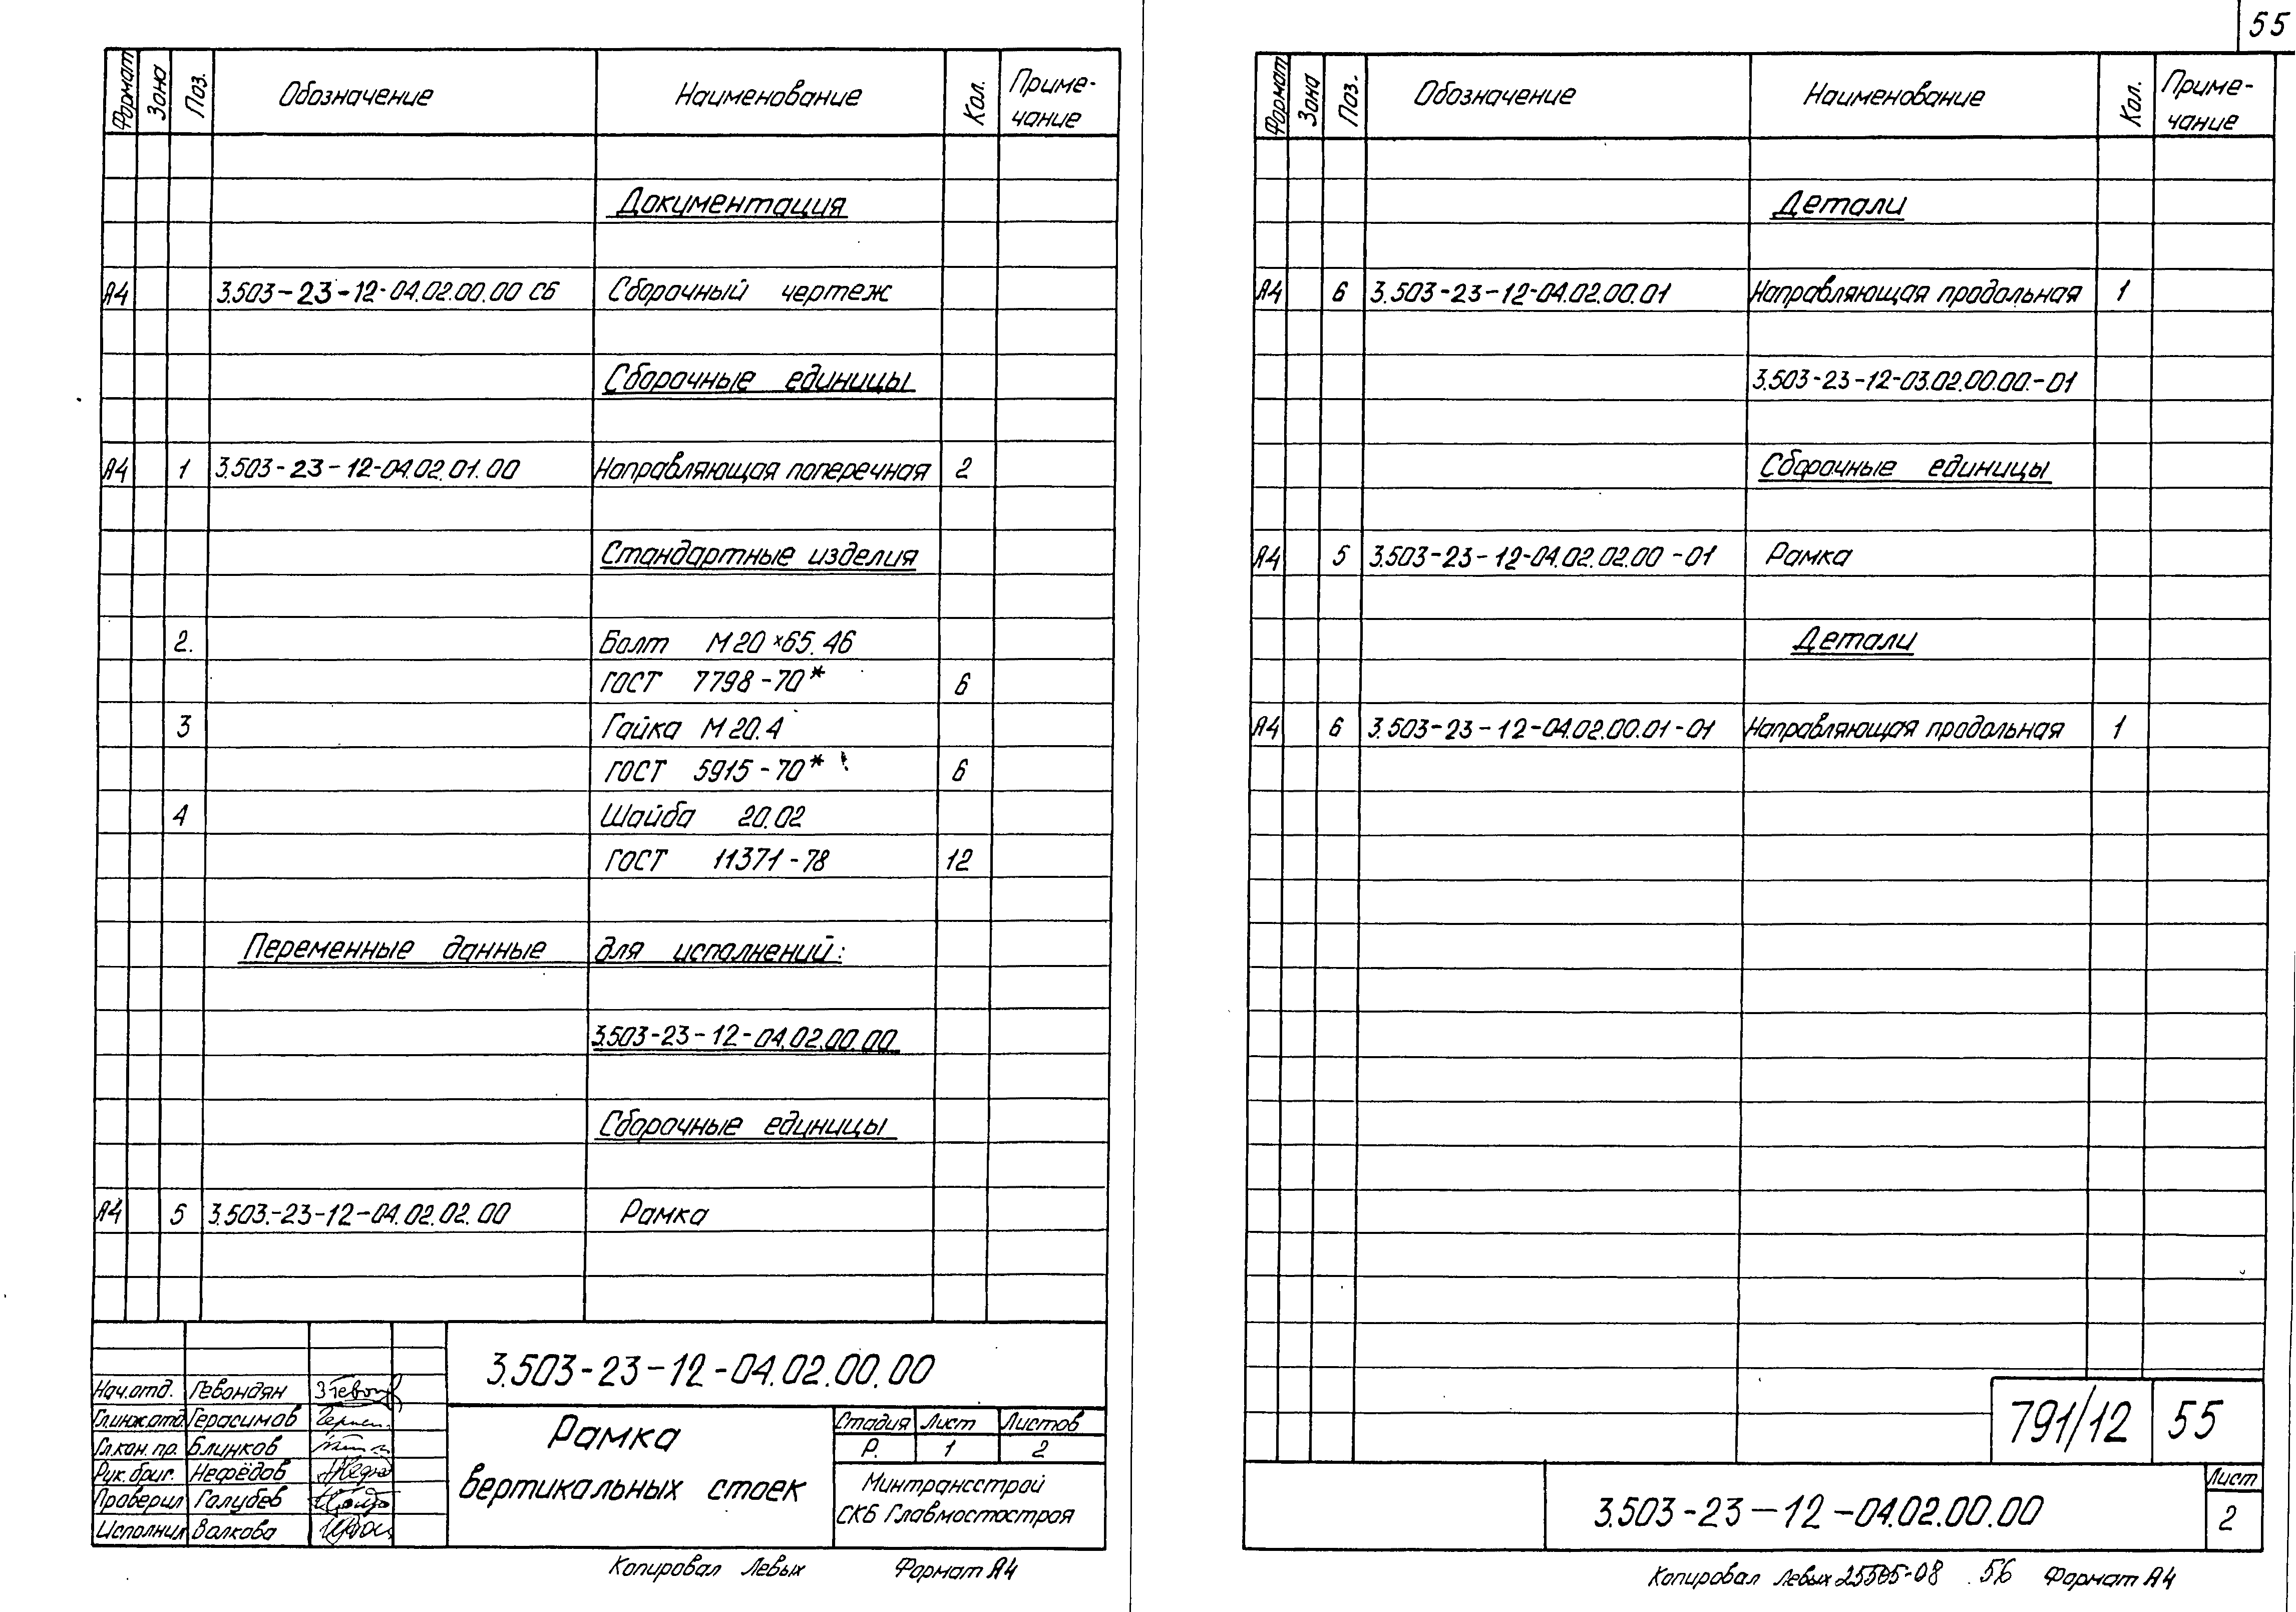 Формат Зона Поз. Обозначение Наименование Кол. Приме-
чание
Документация
А4 3.503-23-12-04.02.00.00 СБ Сборочный чертеж
Сборочные единицы
А4 1 3.503-23-12-04.02.01.00 Направляющая поперечная 2
Стандартные изделия
2. Болт М20×65.46
ГОСТ 7798-70* 6
3 Гайка М20.4
ГОСТ 5915-70* 6
4 Шайба 20.02
ГОСТ 11371-78 12
Переменные данные для исполнений:
3.503-23-12-04.02.00.00
Сборочные единицы
А4 5 3.503.-23-12-04.02.02.00 Рамка
3.503-23-12-04.02.00.00
Нач.отд. Гевондян
Гл.инж.отд Герасимов
Гл.кон.пр. Блинков
Рук.бриг. Нефёдов
Проверил Голубев
Исполнил Волкова
Рамка
вертикальных стоек
Стадия Лист Листов
Р. 1 2
Минтрансстрой
СКБ Главмостостроя
Копировал Левых Формат А4
55
Формат Зона Поз. Обозначение Наименование Кол. Приме-
чание
Детали
А4 6 3.503-23-12-04.02.00.01 Направляющая продольная 1
3.503-23-12-03.02.00.00.-01
Сборочные единицы
А4 5 3.503-23-12-04.02.02.00-01 Рамка
Детали
А4 6 3.503-23-12-04.02.00.01-01 Направляющая продольная 1
791/12 55
3.503-23-12-04.02.00.00
Лист
2
Копировал Левых 25505-08 56 Формат А4